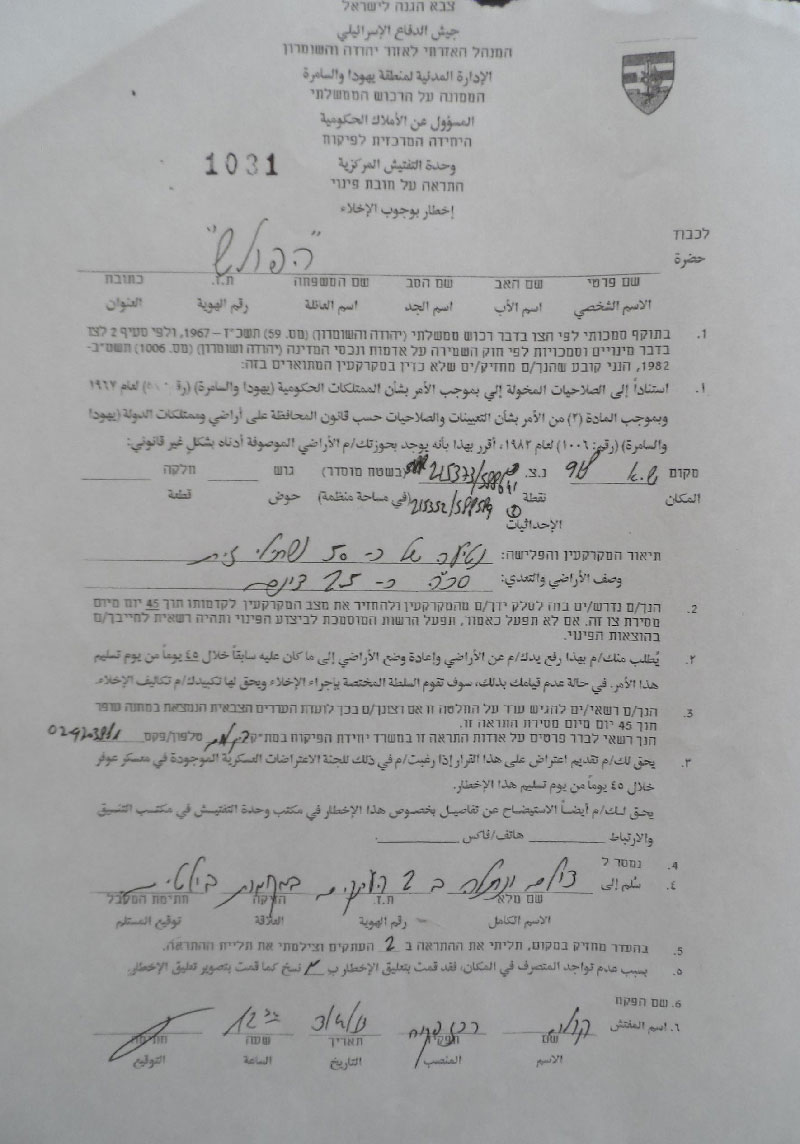 צבא הגנה לישראל
جيش الدفاع الإسرائيلي
המנהל האזרחי לאזור יהודה והשומרון
الإدارة المدنية لمنطقة يهودا والسامرة
הממונה על הרכוש הממשלתי
المسؤول عن الأملاك الحكومية
היחידה המרכזית לפיקוח
وحدة التفتيش المركزية
1031
התראה על חובת פינוי
إخطار بوجوب الإخلاء
לכבוד
حضرة
"הפולש"
שם פרטי שם האב שם הסב שם המשפחה ת.ז. כתובת
الاسم الشخصي اسم الأب اسم الجد اسم العائلة رقم الهوية العنوان
1. בתוקף סמכותי לפי הצו בדבר רכוש ממשלתי (יהודה והשומרון) (מס. 59) תשכ"ז – 1967, ולפי סעיף 2 לצו
בדבר מינויים וסמכויות לפי חוק השמירה על אדמות ונכסי המדינה (יהודה ושומרון) (מס. 1006) תשמ"ב-
1982, הנני קובע שהנך/ם מחזיק/ים שלא כדין במקרקעין המתוארים בזה:
١. استناداً إلى الصلاحيات المخولة إلي بموجب الأمر بشأن الممتلكات الحكومية (يهودا والسامرة) لعام ١٩٦٧
وبموجب المادة (٢) من الأمر بشأن التعيينات والصلاحيات حسب قانون المحافظة على أراضي وممتلكات الدولة (يهودا
والسامرة) (رقم: ١٠٠٦) لعام ١٩٨٢، أقرر بهذا بأنه يوجد بحوزتك/م الأراضي الموصوفة أدناه بشكل غير قانوني:
מקום נ.צ. 215373/ (בשטח מוסדר) גוש חלקה
المكان نقطة 215352/ (في مساحة منظمة) حوض قطعة
الإحداثيات
תיאור המקרקעין והפלישה: נטיעה של כ- 50 שתילי זית
وصف الأراضي والتعدي: סה"כ כ- 2.5 דונם
2. הנך/ם נדרש/ים בזה לסלק ידך/ם מהמקרקעין ולהחזיר את מצב המקרקעין לקדמותו תוך 45 יום מיום
מסירת צו זה. אם לא תפעל כאמור, תפעל הרשות המוסמכת לביצוע הפינוי ותהיה רשאית לחייבך/ם
בהוצאות הפינוי.
٢. يُطلب منك/م بهذا رفع يدك/م عن الأراضي وإعادة وضع الأراضي إلى ما كان عليه سابقاً خلال ٤٥ يوماً من يوم تسليم
هذا الأمر. في حالة عدم قيامك بذلك، سوف تقوم السلطة المختصة بإجراء الإخلاء ويحق لها تكبيدك/م تكاليف الإخلاء.
3. הנך/ם רשאי/ים להגיש ערר על החלטה זו אם רצונך/ם בכך לועדת העררים הצבאית הנמצאת במחנה עופר
תוך 45 יום מיום מסירת התראה זו.
הנך רשאי לברר פרטים על אודות התראה זו במשרד יחידת הפיקוח במת"ק טלפון/פקס
٣. يحق لك/م تقديم اعتراض على هذا القرار إذا رغبت/م في ذلك للجنة الاعتراضات العسكرية الموجودة في معسكر عوفر
خلال ٤٥ يوماً من يوم تسليم هذا الإخطار.
يحق لك/م أيضاً الاستيضاح عن تفاصيل بخصوص هذا الإخطار في مكتب وحدة التفتيش في مكتب التنسيق
والارتباط هاتف/فاكس
4. נמסר ל
٤. سُلم إلى
צולם ונתלה ב 2 העתקים במקומות בולטים
שם מלא ת.ז. הזיקה חתימת המקבל
الاسم الكامل رقم الهوية العلاقة توقيع المستلم
5. בהעדר מחזיק במקום, תליתי את ההתראה ב 2 העתקים וצילמתי את תליית ההתראה.
٥. بسبب عدم تواجد المتصرف في المكان، فقد قمت بتعليق الإخطار ب ٢ نسخ كما قمت بتصوير تعليق الإخطار.
6. שם הפקח
٦. اسم المفتش
שם תפקיד תאריך שעה חתימה
الاسم المنصب التاريخ الساعة التوقيع